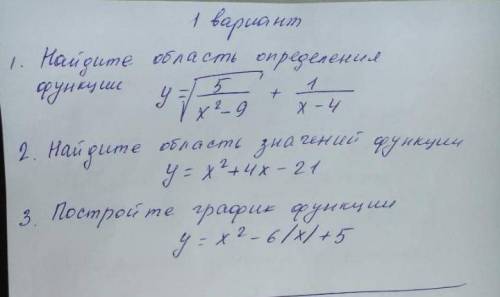 1 вариант
1. Найдите область определения
функции y = √(5/(x² - 9)) + 1/(x - 4)
2. Найдите область значений функции
y = x² + 4x - 21
3. Постройте график функции
y = x² - 6/x/ + 5